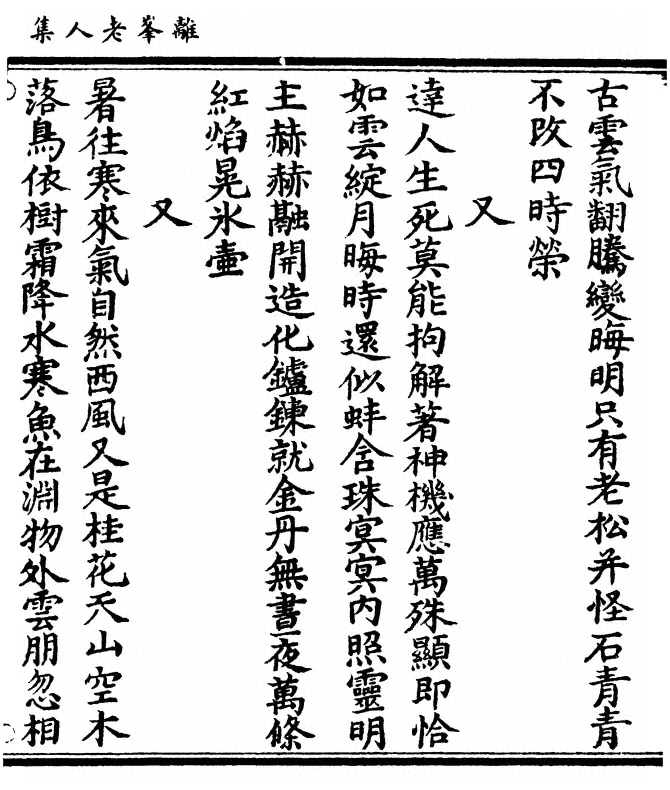 離峯老人集
古雲氣翻騰變晦明只有老松并怪石青青
不改四時榮
又
達人生死莫能拘解著神機應萬殊顯即恰
如雲綻月晦時還似蚌含珠㝠㝠內照靈明
主赫赫融開造化鑪鍊就金丹無晝夜萬條
紅焰晃氷壷
又
暑往寒來氣自然西風又是桂花天山空木
落鳥依樹霜降水寒魚在淵物外雲朋忽相